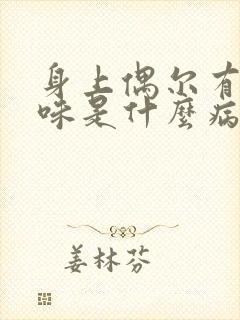 身上偶尔有
味是什麼病
姜林芬